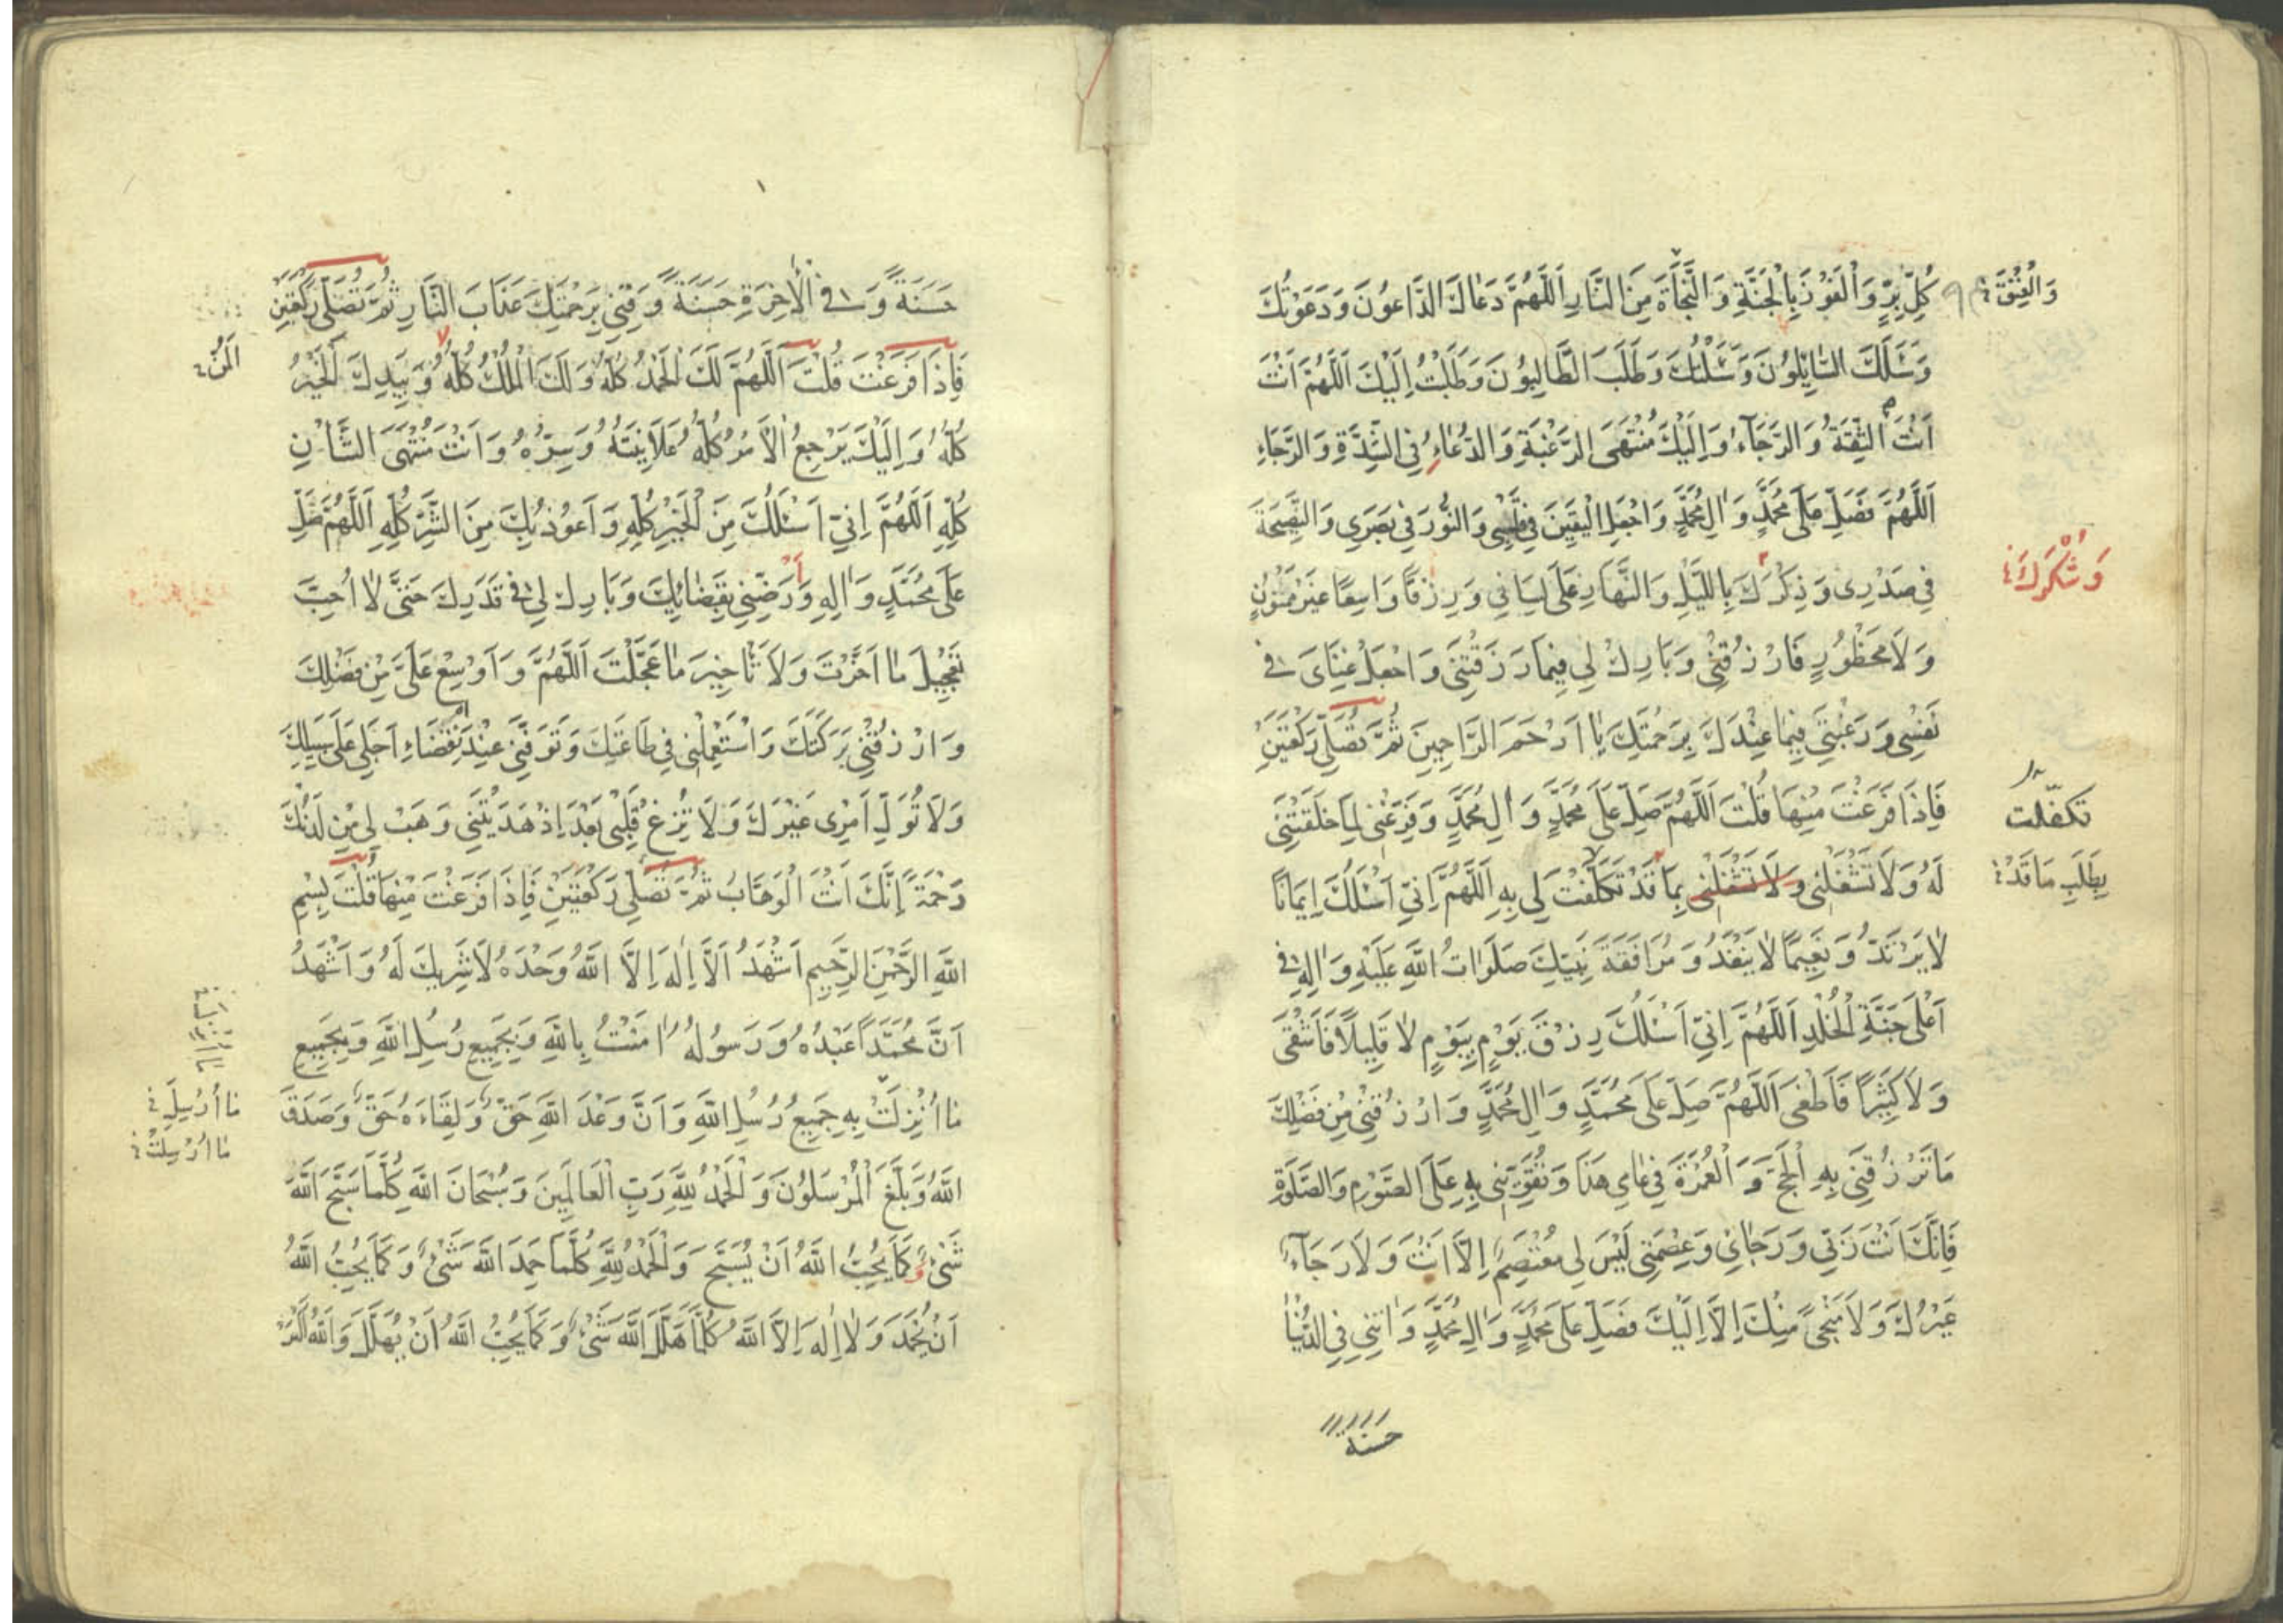 كُلِّ بِرٍّ وَالْفَوْزَ بِالْجَنَّةِ وَالنَّجَاةَ مِنَ النَّارِ اَللّٰهُمَّ دَعَاكَ الدَّاعُونَ وَدَعَوْتُكَ
وَسَئَلَكَ السَّائِلُونَ وَسَئَلْتُكَ وَطَلَبَ الطَّالِبُونَ وَطَلَبْتُ اِلَيْكَ اَللّٰهُمَّ اَنْتَ
اَنْتَ الثِّقَةُ وَالرَّجَآءُ وَاِلَيْكَ مُنْتَهَى الرَّغْبَةِ وَالدُّعَاءِ فِى الشِّدَّةِ وَالرَّخَاءِ
اَللّٰهُمَّ فَصَلِّ عَلٰى مُحَمَّدٍ وَاٰلِ مُحَمَّدٍ وَاجْعَلِ الْيَقِينَ فِى قَلْبِى وَالنُّورَ فِى بَصَرِى وَالنَّصِيحَةَ
فِى صَدْرِى وَذِكْرَكَ بِاللَّيْلِ وَالنَّهَارِ عَلٰى لِسَانِى وَرِزْقًا وَاسِعًا غَيْرَ مَمْنُونٍ
وَلَا مَحْظُورٍ فَارْزُقْنِى وَبَارِكْ لِى فِيمَا رَزَقْتَنِى وَاجْعَلْ غِنَاىَ فِى
نَفْسِى وَرَغْبَتِى فِيمَا عِنْدَكَ بِرَحْمَتِكَ يَا اَرْحَمَ الرَّاحِمِينَ ثُمَّ تُصَلِّى رَكْعَتَيْنِ
فَاِذَا فَرَغْتَ مِنْهَا قُلْتَ اَللّٰهُمَّ صَلِّ عَلٰى مُحَمَّدٍ وَاٰلِ مُحَمَّدٍ وَفَرِّغْنِى لِمَا خَلَقْتَنِى
لَهُ وَلَا تَشْغَلْنِى وَلَا تَشْغَلْنِى بِمَا قَدْ تَكَلَّفْتَ لِى بِهِ اَللّٰهُمَّ اِنِّى اَسْئَلُكَ اِيمَانًا
لَا يَرْتَدُّ وَنَعِيمًا لَا يَنْفَدُ وَمُرَافَقَةَ نَبِيِّكَ صَلَوَاتُ اللّٰهِ عَلَيْهِ وَاٰلِهِ فِى
اَعْلٰى جَنَّةِ الْخُلْدِ اَللّٰهُمَّ اِنِّى اَسْئَلُكَ رِزْقَ يَوْمٍ بِيَوْمٍ لَا قَلِيلًا فَاَشْقٰى
وَلَا كَثِيرًا فَاَطْغٰى اَللّٰهُمَّ صَلِّ عَلٰى مُحَمَّدٍ وَاٰلِ مُحَمَّدٍ وَارْزُقْنِى مِنْ فَضْلِكَ
مَا تَرْزُقُنِى بِهِ الْحَجَّ وَالْعُمْرَةَ فِى عَامِى هَذَا وَتُقَوِّيَنِى بِهِ عَلَى الصَّوْمِ وَالصَّلٰوةِ
فَاِنَّكَ اَنْتَ رَبِّى وَرَجَائِى وَعِصْمَتِى لَيْسَ لِى مُعْتَصَمٌ اِلَّا اَنْتَ وَلَا رَجَآءٌ
غَيْرُكَ وَلَا مَنْجٰى مِنْكَ اِلَّا اِلَيْكَ فَصَلِّ عَلٰى مُحَمَّدٍ وَاٰلِ مُحَمَّدٍ وَاٰتِنِى فِى الدُّنْيَا
حسنة
وَشُكْرَكَ
تكفّلت
بِطَلَبِ مَا قَدْ
حَسَنَةً وَفِى الْاٰخِرَةِ حَسَنَةً وَقِنِى بِرَحْمَتِكَ عَذَابَ النَّارِ ثُمَّ تُصَلِّى رَكْعَتَيْنِ
فَاِذَا فَرَغْتَ قُلْتَ اَللّٰهُمَّ لَكَ الْحَمْدُ كُلُّهُ وَلَكَ الْمُلْكُ كُلُّهُ وَبِيَدِكَ الْخَيْرُ
كُلُّهُ وَاِلَيْكَ يَرْجِعُ الْاَمْرُ كُلُّهُ عَلَانِيَتُهُ وَسِرُّهُ وَاَنْتَ مُنْتَهَى الشَّأْنِ
كُلِّهِ اَللّٰهُمَّ اِنِّى اَسْئَلُكَ مِنَ الْخَيْرِ كُلِّهِ وَاَعُوذُ بِكَ مِنَ الشَّرِّ كُلِّهِ اَللّٰهُمَّ صَلِّ
عَلٰى مُحَمَّدٍ وَاٰلِهِ وَرَضِّنِى بِقَضَائِكَ وَبَارِكْ لِى فِى قَدَرِكَ حَتّٰى لَا اُحِبَّ
تَعْجِيلَ مَا اَخَّرْتَ وَلَا تَأْخِيرَ مَا عَجَّلْتَ اَللّٰهُمَّ وَاَوْسِعْ عَلَىَّ مِنْ فَضْلِكَ
وَارْزُقْنِى بَرَكَتَكَ وَاسْتَعْمِلْنِى فِى طَاعَتِكَ وَتَوَفَّنِى عِنْدَ انْقِضَاءِ اَجَلِى عَلٰى سَبِيلِكَ
وَلَا تُوَلِّ اَمْرِى غَيْرَكَ وَلَا تُزِغْ قَلْبِى بَعْدَ اِذْ هَدَيْتَنِى وَهَبْ لِى مِنْ لَدُنْكَ
رَحْمَةً اِنَّكَ اَنْتَ الْوَهَّابُ ثُمَّ تُصَلِّى رَكْعَتَيْنِ فَاِذَا فَرَغْتَ مِنْهَا قُلْتَ بِسْمِ
اللّٰهِ الرَّحْمٰنِ الرَّحِيمِ اَشْهَدُ اَلَّا اِلٰهَ اِلَّا اللّٰهُ وَحْدَهُ لَا شَرِيكَ لَهُ وَاَشْهَدُ
اَنَّ مُحَمَّدًا عَبْدُهُ وَرَسُولُهُ اٰمَنْتُ بِاللّٰهِ وَبِجَمِيعِ رُسُلِ اللّٰهِ وَبِجَمِيعِ
مَا اُنْزِلَتْ بِهِ جَمِيعُ رُسُلِ اللّٰهِ وَاَنَّ وَعْدَ اللّٰهِ حَقٌّ وَلِقَاءَهُ حَقٌّ وَصَدَقَ
اللّٰهُ وَبَلَّغَ الْمُرْسَلُونَ وَالْحَمْدُ لِلّٰهِ رَبِّ الْعَالَمِينَ وَسُبْحَانَ اللّٰهِ كُلَّمَا سَبَّحَ اللّٰهَ
شَىْءٌ وَكَمَا يُحِبُّ اللّٰهُ اَنْ يُسَبَّحَ وَالْحَمْدُ لِلّٰهِ كُلَّمَا حَمِدَ اللّٰهَ شَىْءٌ وَكَمَا يُحِبُّ اللّٰهُ
اَنْ يُحْمَدَ وَلَا اِلٰهَ اِلَّا اللّٰهُ كُلَّمَا هَلَّلَ اللّٰهَ شَىْءٌ وَكَمَا يُحِبُّ اللّٰهُ اَنْ يُهَلَّلَ وَاللّٰهُ اَكْبَرُ
مَا اُرْسِلَ
مَا اُرْسِلَتْ